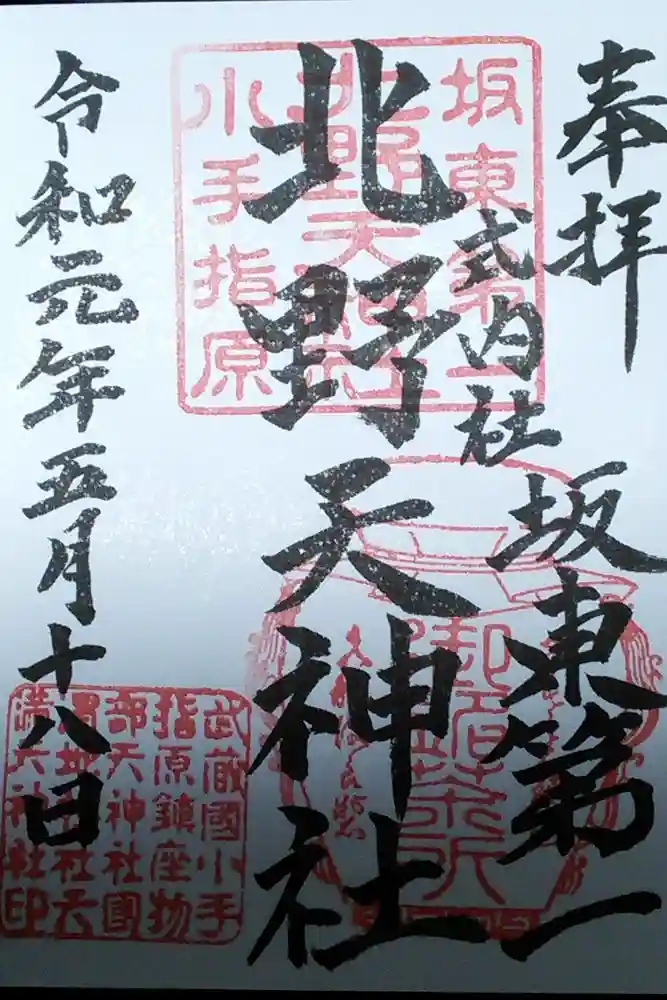 奉拝
坂東第一
式内社
北野天神社
令和元年五月十八日
坂東第一
北野天神社
小手指原
武蔵國小手
指原鎮座物
部天神社國